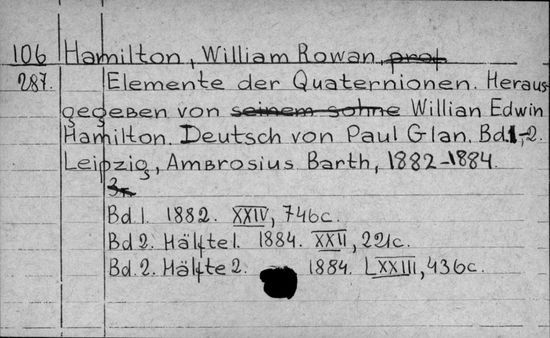 106 Hamilton, William Rowan, prof
287. Elemente der Quaternionen. Heraus-
gegeben von seinem sohne Willian Edwin
Hamilton. Deutsch von Paul Glan. Bd. 1-2.
Leipzig, Ambrosius Barth, 1882-1884.
Bd 1. 1882. XXIV, 746c.
Bd 2. Hälfte 1. 1884. XXII, 221c.
Bd. 2. Hälfte 2. 1884. LXXIII, 436c.